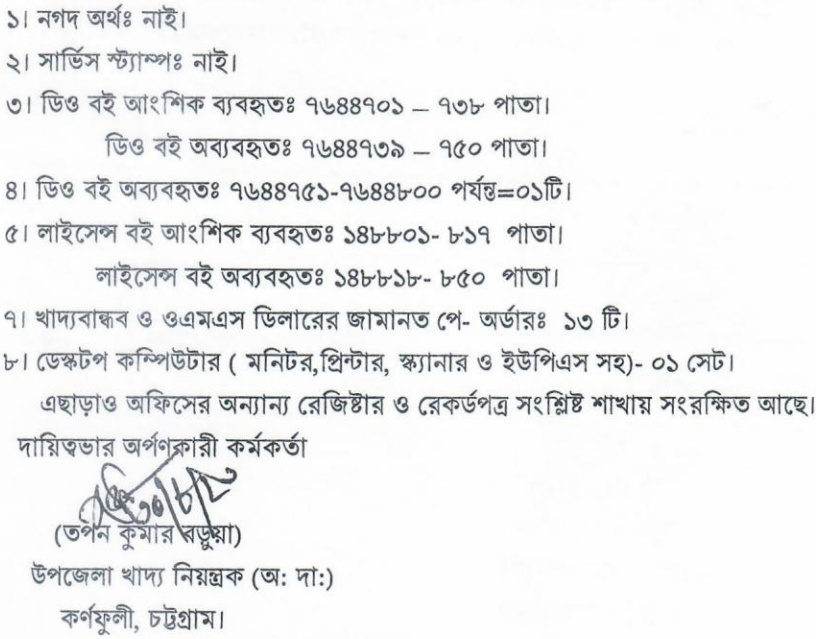 ১। নগদ অর্থঃ নাই।
২। সার্ভিস স্ট্যাম্পঃ নাই।
৩। ডিও বই আংশিক ব্যবহৃতঃ ৭৬৪৪৭০১ – ৭৩৮ পাতা।
ডিও বই অব্যবহৃতঃ ৭৬৪৪৭৩৯ – ৭৫০ পাতা।
৪। ডিও বই অব্যবহৃতঃ ৭৬৪৪৭৫১-৭৬৪৪৮০০ পর্যন্ত=০১টি।
৫। লাইসেন্স বই আংশিক ব্যবহৃতঃ ১৪৮৮০১- ৮১৭ পাতা।
লাইসেন্স বই অব্যবহৃতঃ ১৪৮৮১৮- ৮৫০ পাতা।
৭। খাদ্যবান্ধব ও ওএমএস ডিলারের জামানত পে- অর্ডারঃ ১৩ টি।
৮। ডেস্কটপ কম্পিউটার ( মনিটর,প্রিন্টার, স্ক্যানার ও ইউপিএস সহ)- ০১ সেট।
এছাড়াও অফিসের অন্যান্য রেজিষ্টার ও রেকর্ডপত্র সংশ্লিষ্ট শাখায় সংরক্ষিত আছে।
দায়িত্বভার অর্পণকারী কর্মকর্তা
(তপন কুমার বড়ুয়া)
উপজেলা খাদ্য নিয়ন্ত্রক (অ: দা:)
কর্ণফুলী, চট্টগ্রাম।